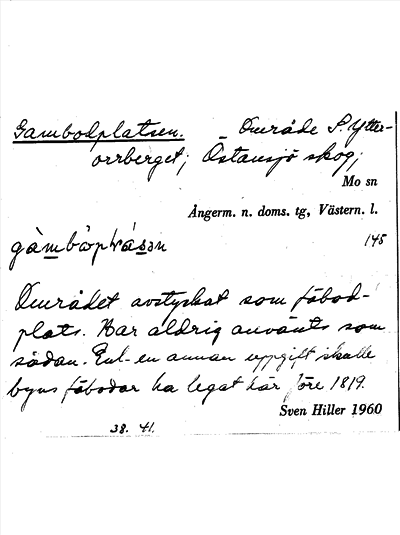 Gambodplatsen. Område S. Ytter-
orrberget; Östansjö skog;
Mo sn
Ångerm. n. doms. tg, Västern. l.
145
Området avstyckat som fäbod-
plats. Har aldrig använts som
sådan. Enl. en annan uppgift skulle
byns fäbodar ha legat här före 1819.
Sven Hiller 1960
38. 41.